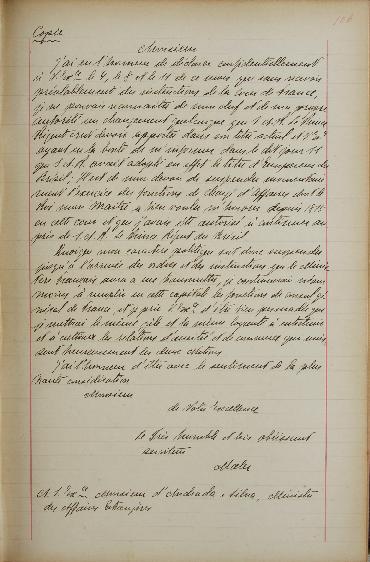 106
Copie
Monsieur
J'ai eu l'honneur de déclarer confidentiellement
à V. Exce le 4, le 8 et le 11 de ce mois, que sans recevoir
préalablement des instructions de la Cour de France,
je ne pouvais reconnaître de mon chef et de ma propre
autorité un changement quelconque que S.A.R. le Prince
Régent crut devoir apporter dans son titre actuel et V. Exce
ayant eu la bonté de m'informer dans le dit jour 11
que S.A.R. avait adopté en effet le titre d'Empereur du
Brésil. Il est de mon devoir de suspendre momentané-
ment l'exercice des fonctions de chargé d'affaires dont le
Roi mon Maître a bien voulu m'honorer depuis 1815
en cette cour et que j'avais été autorisé à continuer au-
près de S.A.R. le Prince Régent du Brésil.
Quoique mon caractère politique soit donc suspendu
jusqu'à l'arrivée des ordres et des instructions que le Minis-
tère français aura à me transmettre, je continuerai néan-
moins à remplir en cette capitale les fonctions de consul gé-
néral de France, et je prie V. Exce d'être bien persuadée que
je mettrai le même zèle et la même loyauté à entretenir
et à cultiver les relations d'amitié et de commerce qui unis-
sent heureusement les deux nations.
J'ai l'honneur d'être avec le sentiment de la plus
haute considération
Monsieur
de Votre Excellence
le très humble et très obéissant
serviteur
Maler
A S. Exce Monsieur d'Andrada e Silva, Ministre
des affaires étrangères